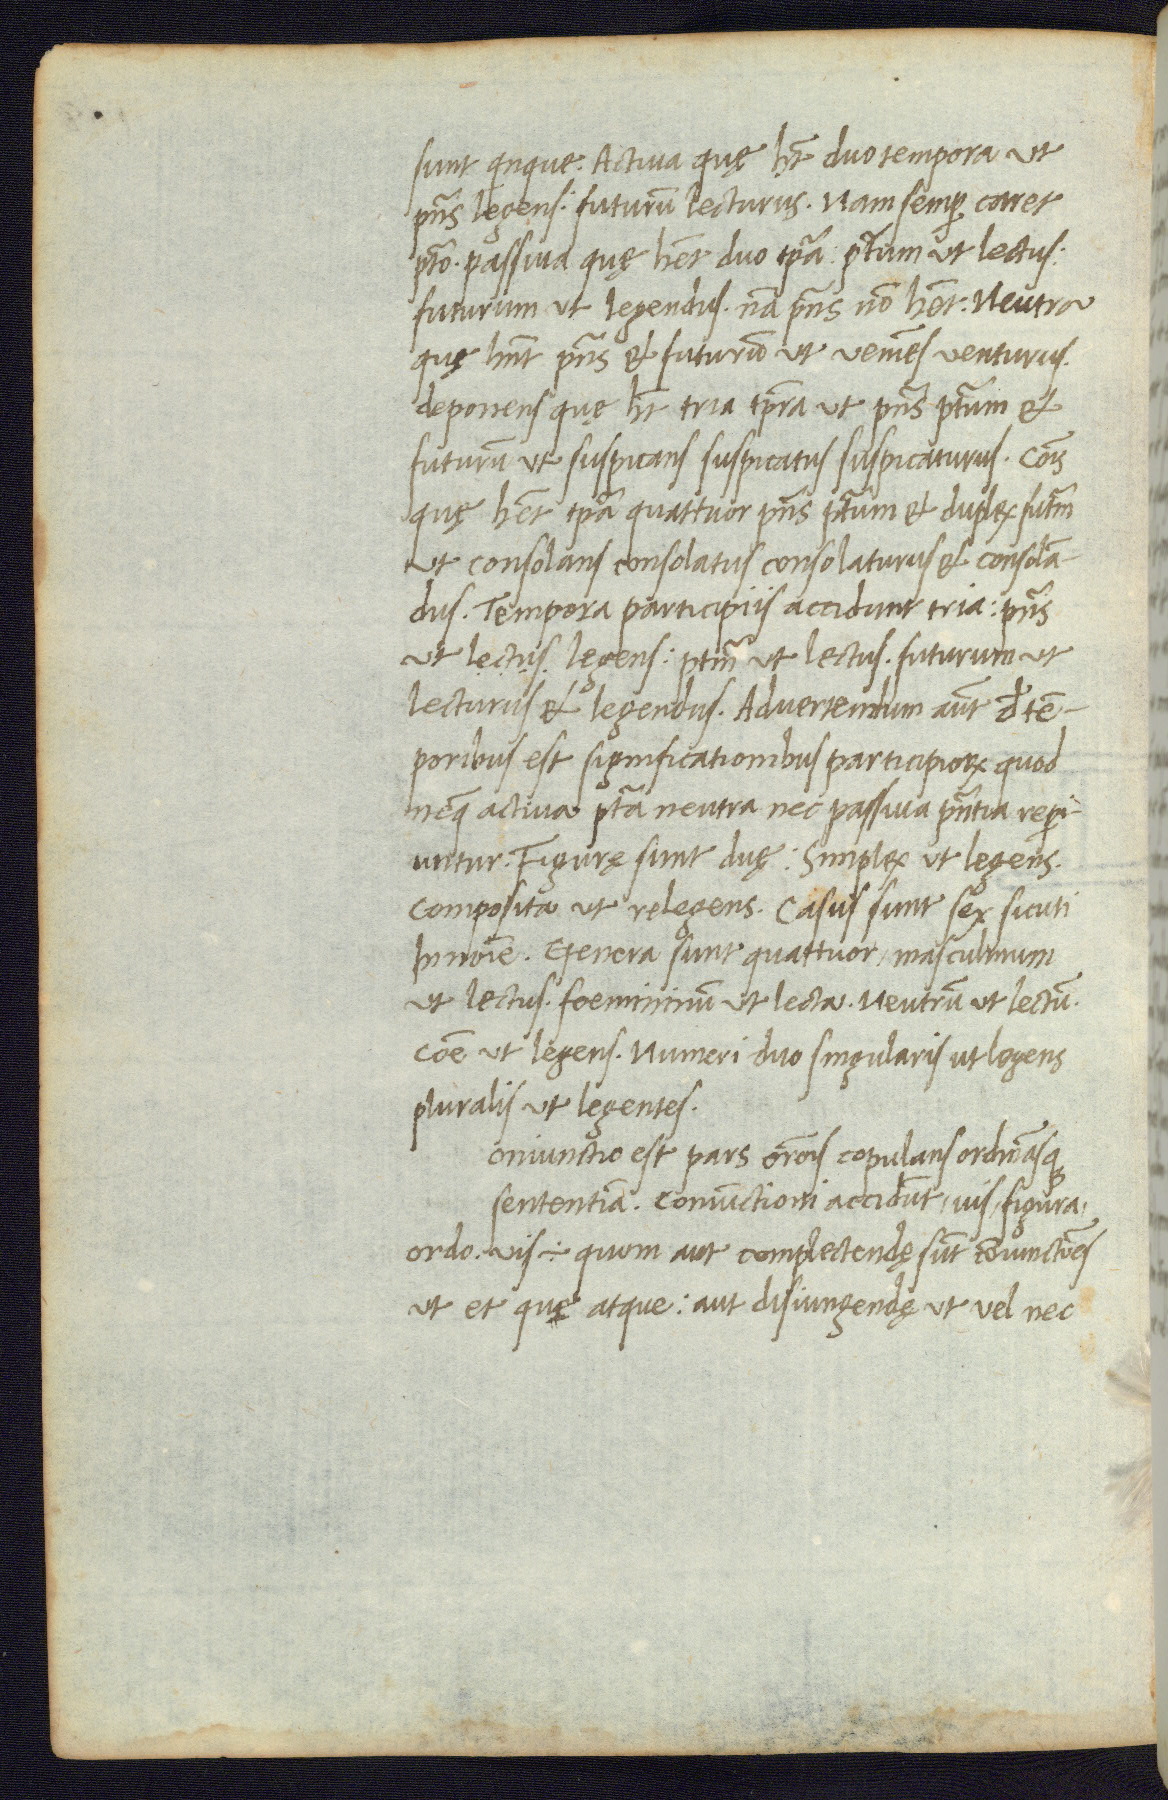 sunt qnque: Activa quę hñt duo tempora ut
pñs legens: futurũ lecturus. Nam semꝑ caret
p̃to. passiva quę hẽt duo tp̃a: p̃tum ut lectus:
futurum ut legendus. nã p̃ns nõ hẽt: Neutra
quę hñt p̃ns & futurũ ut veniẽs venturus.
deponens quę hñt tria tp̃ra ut p̃ns p̃tum &
futurũ ut suspicans suspicatus suspicaturus. Cõis
quę hẽt tp̃a quattuor p̃ns p̃tum & duplex futm̃
ut consolans consolatus consolaturus & consolã-
dus. Tempora participiis accidunt tria: p̃ns
ut lectus legens: ptm̃ ut lectus. futurum ut
lecturus & legendus. Advertendum aũt đ tẽ-
poribus est significationibus participioꝝ quod
neq̃ activa p̃ta neutra nec passiva p̃ntia reꝑi-
untur: Figurę sunt duę: Simplex ut legens.
composita ut relegens. Casus sunt sex sicuti
In noĩe. Genera sunt quattuor, masculinum
ut lectus. foemininũ ut lecta. Neutrũ ut lectũ.
cõe ut legens. Numeri duo singularis ut legens
pluralis ut legentes.
oniunctio est pars orõis copulans ordinãsq
sententiã. Coniũctioni accidũt, uis, figura,
ordo. vis ÷ quom aut complectendę sũt cõiunctiões
ut et quę atque: aut disiungendę ut vel nec